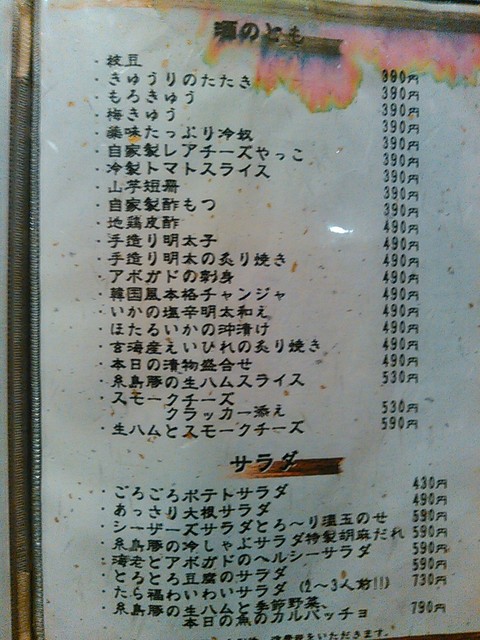 酒のとも
・枝豆 390円
・きゅうりのたたき 390円
・もろきゅう 390円
・梅きゅう 390円
・薬味たっぷり冷奴 390円
・自家製レアチーズやっこ 390円
・冷製トマトスライス 390円
・山芋短冊 390円
・自家製酢もつ 390円
・地鶏皮酢 490円
・手造り明太子 490円
・手造り明太の炙り焼き 490円
・アボガドの刺身 490円
・韓国風本格チャンジャ 490円
・いかの塩辛明太和え 490円
・ほたるいかの沖漬け 490円
・玄海産えいひれの炙り焼き 490円
・本日の漬物盛合せ 490円
・糸島豚の生ハムスライス 530円
・スモークチーズ
クラッカー添え 530円
・生ハムとスモークチーズ 590円
サラダ
・ごろごろポテトサラダ 430円
・あっさり大根サラダ 490円
・シーザーズサラダとろ〜り温玉のせ 590円
・糸島豚の冷しゃぶサラダ特製胡麻だれ 590円
・海老とアボガドのヘルシーサラダ 590円
・とろとろ豆腐のサラダ 590円
・たら福わいわいサラダ (2〜3人前!!) 730円
・糸島豚の生ハムと季節野菜、
本日の魚のカルパッチョ 790円
をいただきます。